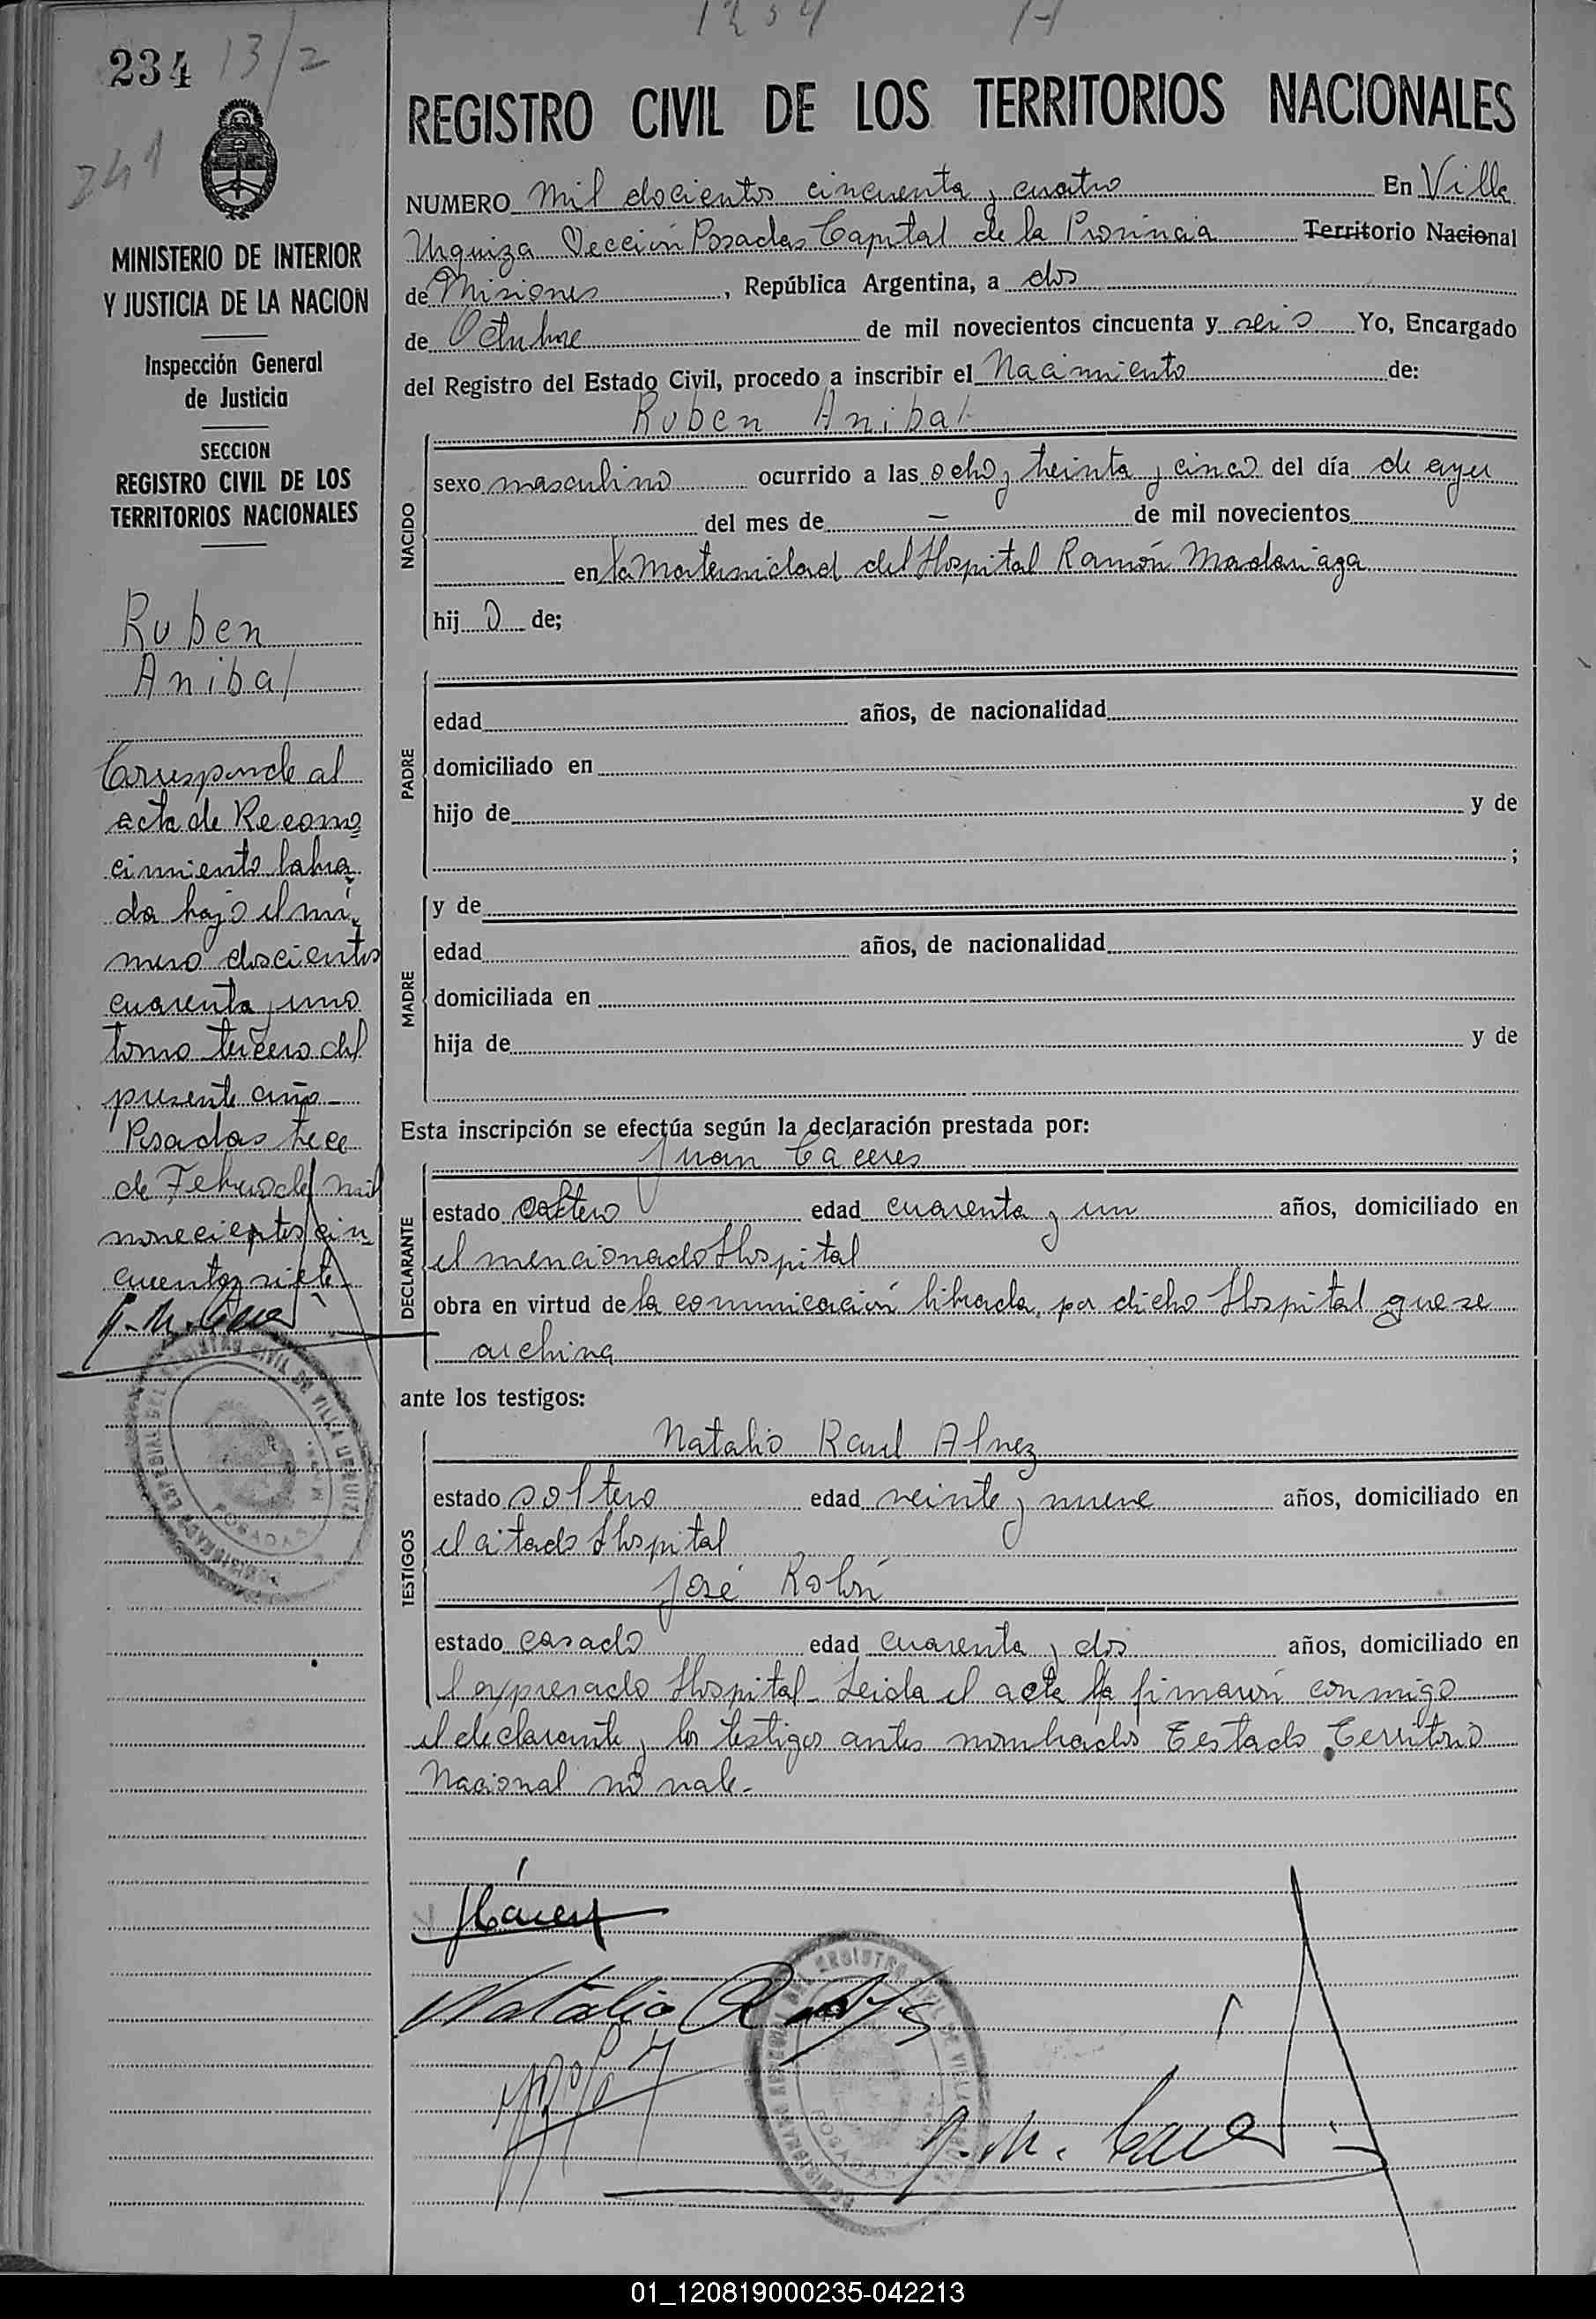 1254 H
234 13/2
241
MINISTERIO DE INTERIOR
Y JUSTICIA DE LA NACION
Inspección General
de Justicia
SECCION
REGISTRO CIVIL DE LOS
TERRITORIOS NACIONALES
Ruben
Anibal
Corresponde al
acta de Recono
cimiento labra
da bajo el nú
mero doscientos
cuarenta y uno
tomo tercero del
presente año -
Posadas trece
de Febrero de mil
novecientos cin
cuenta y siete
REGISTRO CIVIL DE LOS TERRITORIOS NACIONALES
NUMERO Mil docientos cincuenta y cuatro En Villa
Urquiza Sección Posadas Capital de la Provincia Territorio Nacional
de Misiones, República Argentina, a dos
de Octubre de mil novecientos cincuenta y seis Yo, Encargado
del Registro del Estado Civil, procedo a inscribir el Nacimiento de:
Ruben Anibal
NACIDO
sexo masculino ocurrido a las ocho y treinta y cinco del día de ayer
del mes de — de mil novecientos
en la Maternidad del Hospital Ramón Madariaga
hij o de;
PADRE
edad años, de nacionalidad
domiciliado en
hijo de y de
;
MADRE
y de
edad años, de nacionalidad
domiciliada en
hija de y de
Esta inscripción se efectúa según la declaración prestada por:
Juan Cáceres
DECLARANTE
estado soltero edad cuarenta y un años, domiciliado en
el mencionado Hospital
obra en virtud de la comunicación librada por dicho Hospital que se
archiva
ante los testigos:
TESTIGOS
Natalio Raul
estado soltero edad veinte y nueve años, domiciliado en
el citado Hospital
José
estado casado edad cuarenta y dos años, domiciliado en
el expresado Hospital - Leida el acta la firmaron conmigo
el declarante y los testigos antes nombrados Testado Territorio
Nacional no vale.-
JCáceres
Natalio R
01_120819000235-042213